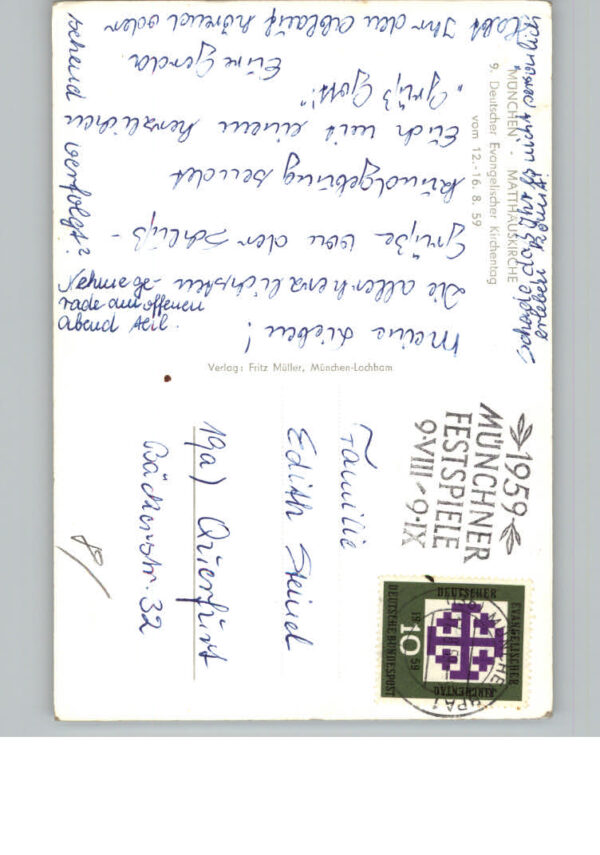 MÜNCHEN · MATTHÄUSKIRCHE
9. Deutscher Evangelischer Kirchentag
vom 12.-16. 8. 59
Meine Lieben!
Die allerherzlichsten
Grüße von der Schluß-
kundgebung sendet
Euch mit einem herzlichen
„Grüß Gott!"
Eure Gerda.
Habt Ihr den Ablauf hörend oder
sehend verfolgt?
Nehme ge-
rade am offenen
Abend teil.
Schade daß Ihr es nicht
erleben könnt!
Verlag: Fritz Müller, München-Lochham
1959
MÜNCHNER
FESTSPIELE
9·VIII-9·IX
DEUTSCHER
EVANGELISCHER
KIRCHENTAG
DEUTSCHE BUNDESPOST
10
1959
Familie
Edith Steinel
19a) Querfurt
Bäckerstr. 32